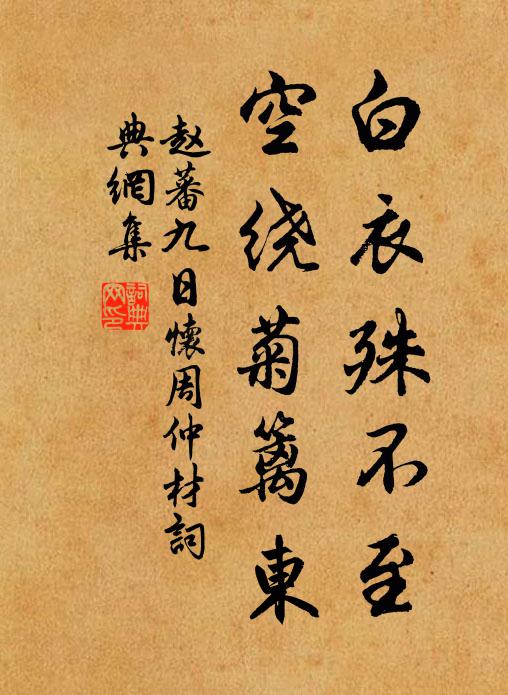 白衣殊不至
空绕菊篱東
赵蕃九日懷周仲材詞
典網集
詞典
网印